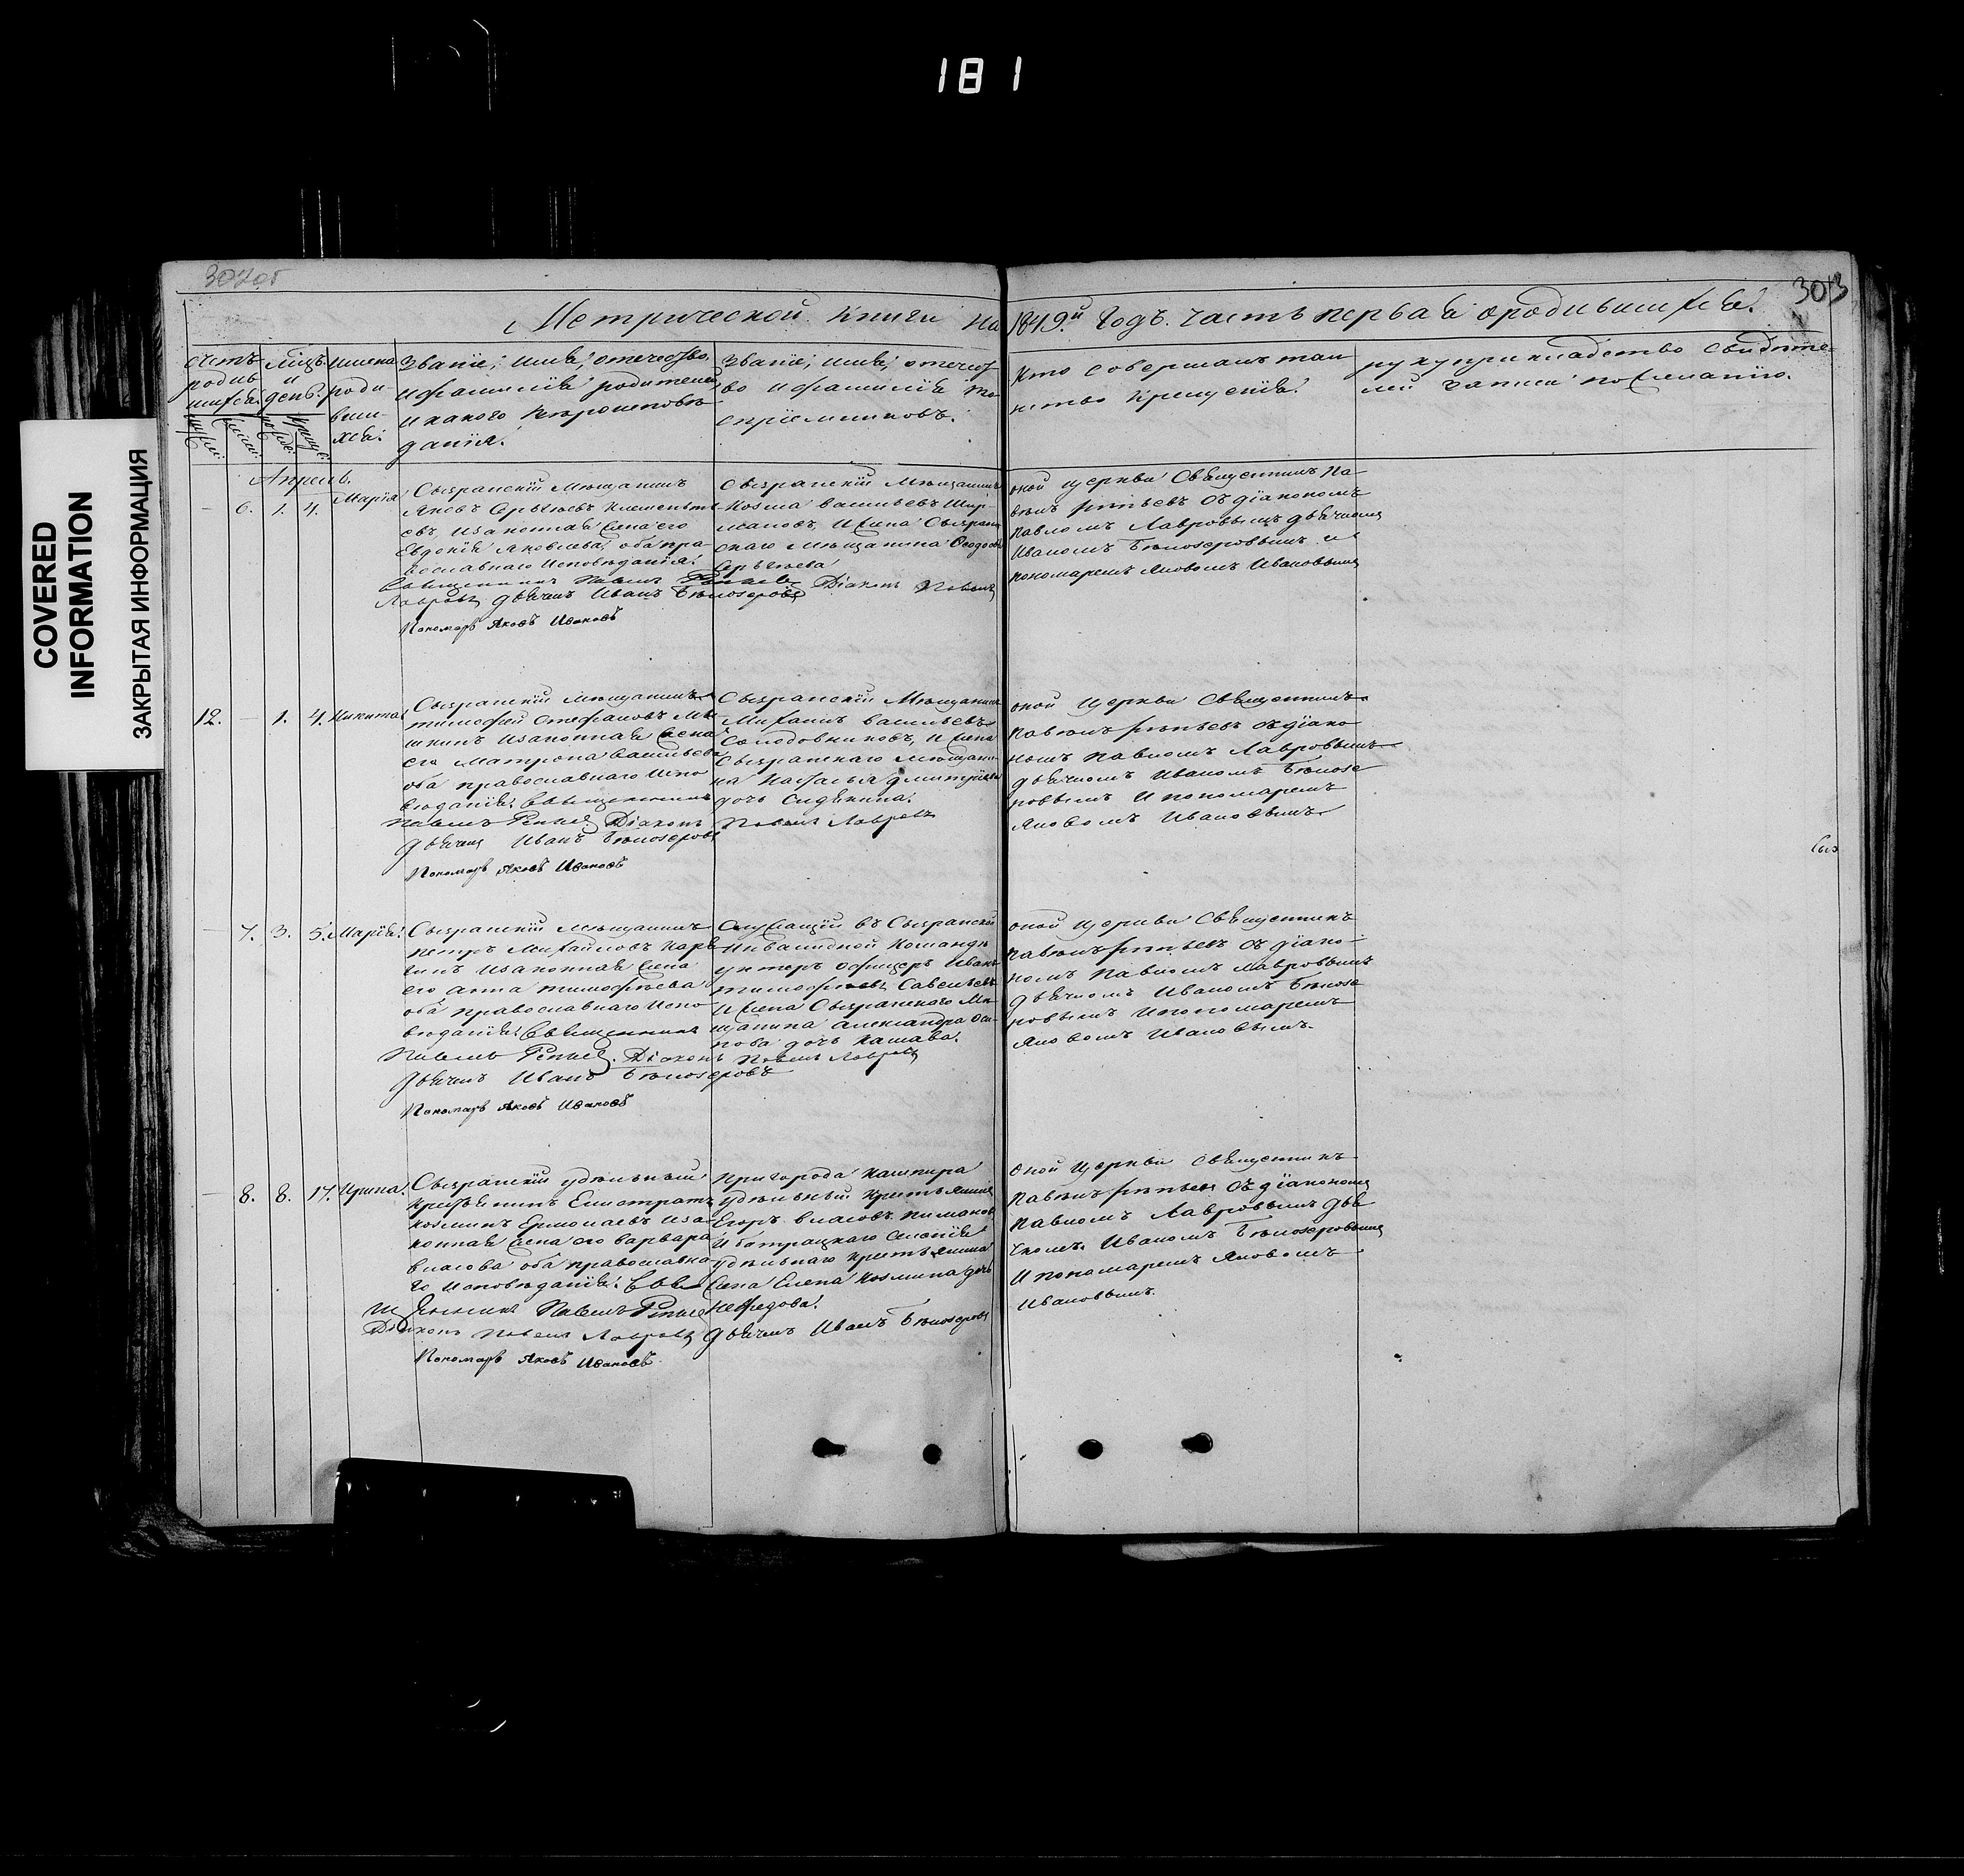 181
COVERED
INFORMATION
ЗАКРЫТАЯ ИНФОРМАЦИЯ
307об
303
Метрической книги на 1849й годъ. часть первая о родившихся.
Счетъ
родив
шихся.
Мѣцъ
и
день.
Имена
роди
вши
хся.
Званіе, имя, отчество,
и фамилія родителей
и какого вѣроисповѣ
данія.
Званіе, имя, отчест
во и фамилія во
спріемниковъ.
Кто совершалъ таи
нство крещенія.
рукуприкладство свидѣте-
лей записи по желанію.
Апрель.
6. 1. 4. Марія
Сызранскій мѣщанинъ
Яковъ Сергѣевъ Клементі
евъ, и законная жена его
Евдокія Яковлева, оба пра
вославнаго исповѣданія.
Сызранскій мѣщанинъ
Козма Васильевъ
и жена Сызран
скаго мѣщанина Ѳеодос
Сергѣева
Священникъ Павелъ Діаконъ Павелъ
Лавровъ дьячекъ Иванъ Бѣлозеровъ
Пономарь Яковъ Ивановъ
оной церкви Священникъ Па
велъ съ діакономъ
Павломъ Лавровымъ дьячкомъ
Иваномъ Бѣлозеровымъ и
пономаремъ Яковомъ Ивановымъ
12. 1. 4. Никита
Сызранскій мѣщанинъ
Тимофей Стефановъ Мѣ
шкинъ и законная жена
его Матрона Васильева
оба православнаго испо
вѣданія. Священникъ
Павелъ Діаконъ Павелъ Лавровъ
дьячекъ Иванъ Бѣлозеровъ
Пономарь Яковъ Ивановъ
Сызранскій мѣщанинъ
Михаилъ Васильевъ
Солодовниковъ, и жена
Сызранскаго мѣщани
на Наталья Дмитріева
дочь Сидякина.
оной церкви Священникъ
Павелъ съ діако
номъ Павломъ Лавровымъ
дьячкомъ Иваномъ Бѣлозе
ровымъ и пономаремъ
Яковомъ Ивановымъ
7. 3. 5. Марія.
Сызранскій мѣщанинъ
Петръ Михайловъ Каре
гинъ и законная жена
его Анна Тимофѣева
оба православнаго испо
вѣданія. Священникъ
Павелъ Діаконъ Павелъ Лавровъ
дьячекъ Иванъ Бѣлозеровъ
Пономарь Яковъ Ивановъ
Служащій въ Сызранской
инвалидной командѣ
унтеръ офицеръ Иванъ
Тимофѣевъ Савельевъ
и жена Сызранского мѣ
щанина Александра Оси
пова дочь Кашава.
оной церкви Священникъ
Павелъ съ діако-
номъ Павломъ Лавровымъ
дьячкомъ Иваномъ Бѣлозе
ровымъ и пономаремъ
Яковомъ Ивановымъ.
8. 8. 17. Ирина.
Сызранскій удѣльный
крестьянинъ Елистратъ
Козминъ Ермолаевъ и за
конная жена его Варвара
Власова оба православна
го исповѣданія. Свя
щенникъ Павелъ
Діаконъ Павелъ Лавровъ дьячекъ Иванъ Бѣлозеровъ
Пономарь Яковъ Ивановъ
Пригорода Кашпира
удѣльный крестьянинъ
Егоръ Власовъ Пимановъ
и
удѣльнаго крестьянина
жена Елена Козмина дочь
Нефедова.
оной церкви Священникъ
Павелъ съ діакономъ
Павломъ Лавровымъ дья
чкомъ Иваномъ Бѣлозеровымъ
и пономаремъ Яковомъ
Ивановымъ.
Сыз